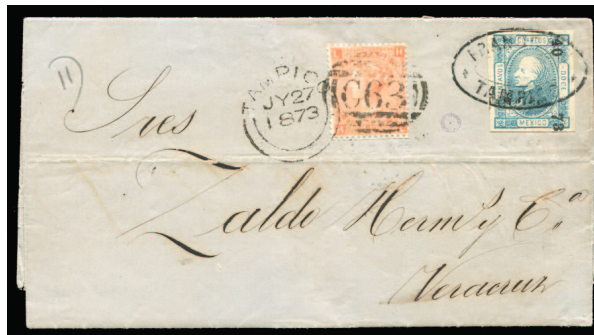 11
TAMPICO
JY 27
1873
C63
L H
FRAN
TAM
DOCE
MEXICO
73
Sres
Zaldo Herms y Cª
Veracruz